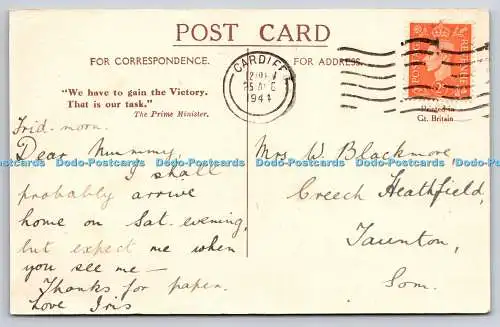 POST CARD
FOR CORRESPONDENCE.
FOR ADDRESS.
"We have to gain the Victory.
That is our task."
The Prime Minister.
CARDIFF
25 AUG
1944
POSTAGE
REVENUE
Printed in
Gt. Britain
Frid. morn.
Dear Mummy,
I shall
probably arrive
home on Sat. evening,
but expect me when
you see me —
Thanks for paper.
Love Iris
Mrs W. Blackmore
Creech Heathfield,
Taunton,
Som.
Dodo-Postcards Dodo-Postcards Dodo-Postcards Dodo-Postcards Dodo-Postcards